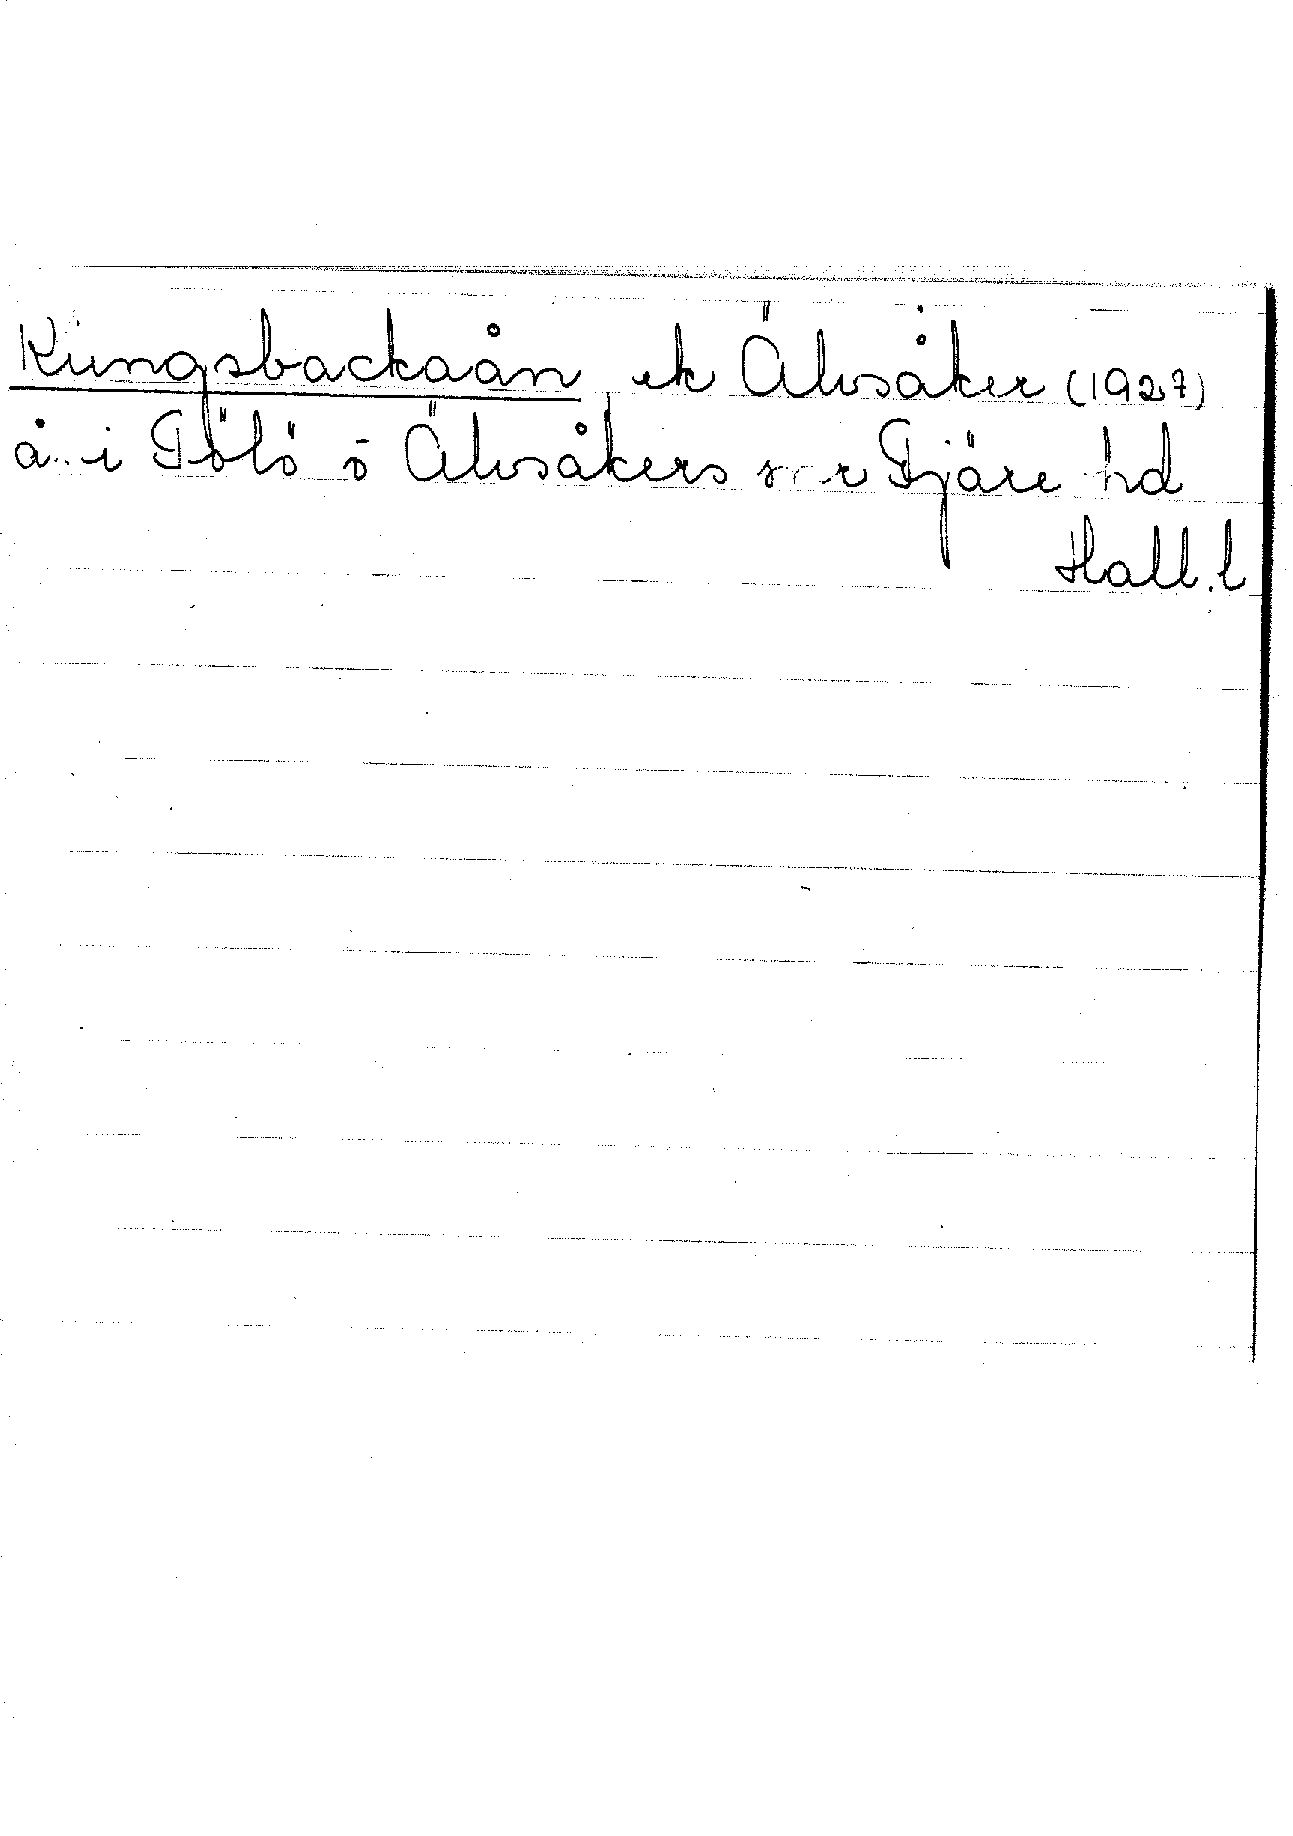 Kungsbackaån ek Älvsåker (1927)
å i Tölö o Älvsåkers s:r Fjäre hd
Hall. l